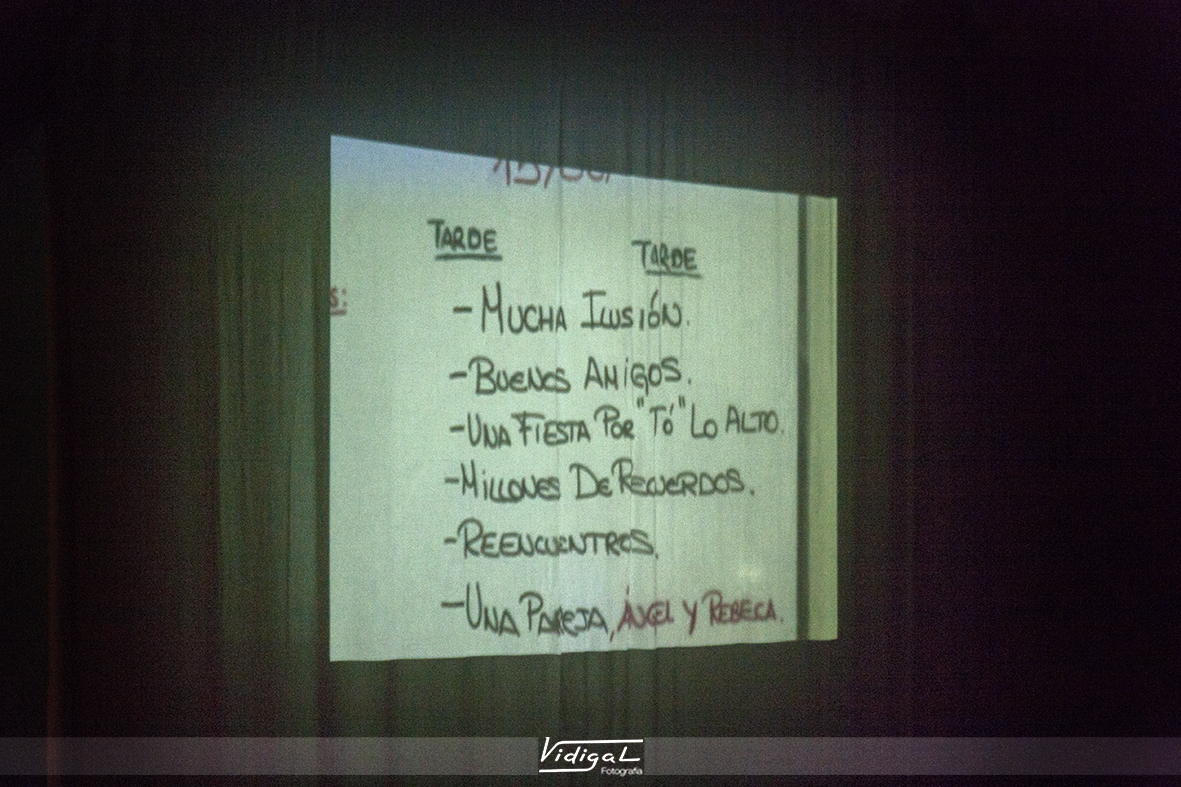 TARDE
TARDE
S:
- MUCHA ILUSIÓN.
- BUENOS AMIGOS.
- UNA FIESTA POR "TÓ" LO ALTO.
- MILLONES DE RECUERDOS.
- REENCUENTROS.
- UNA PAREJA, ÁNGEL Y REBECA.
VidigaL
Fotografía